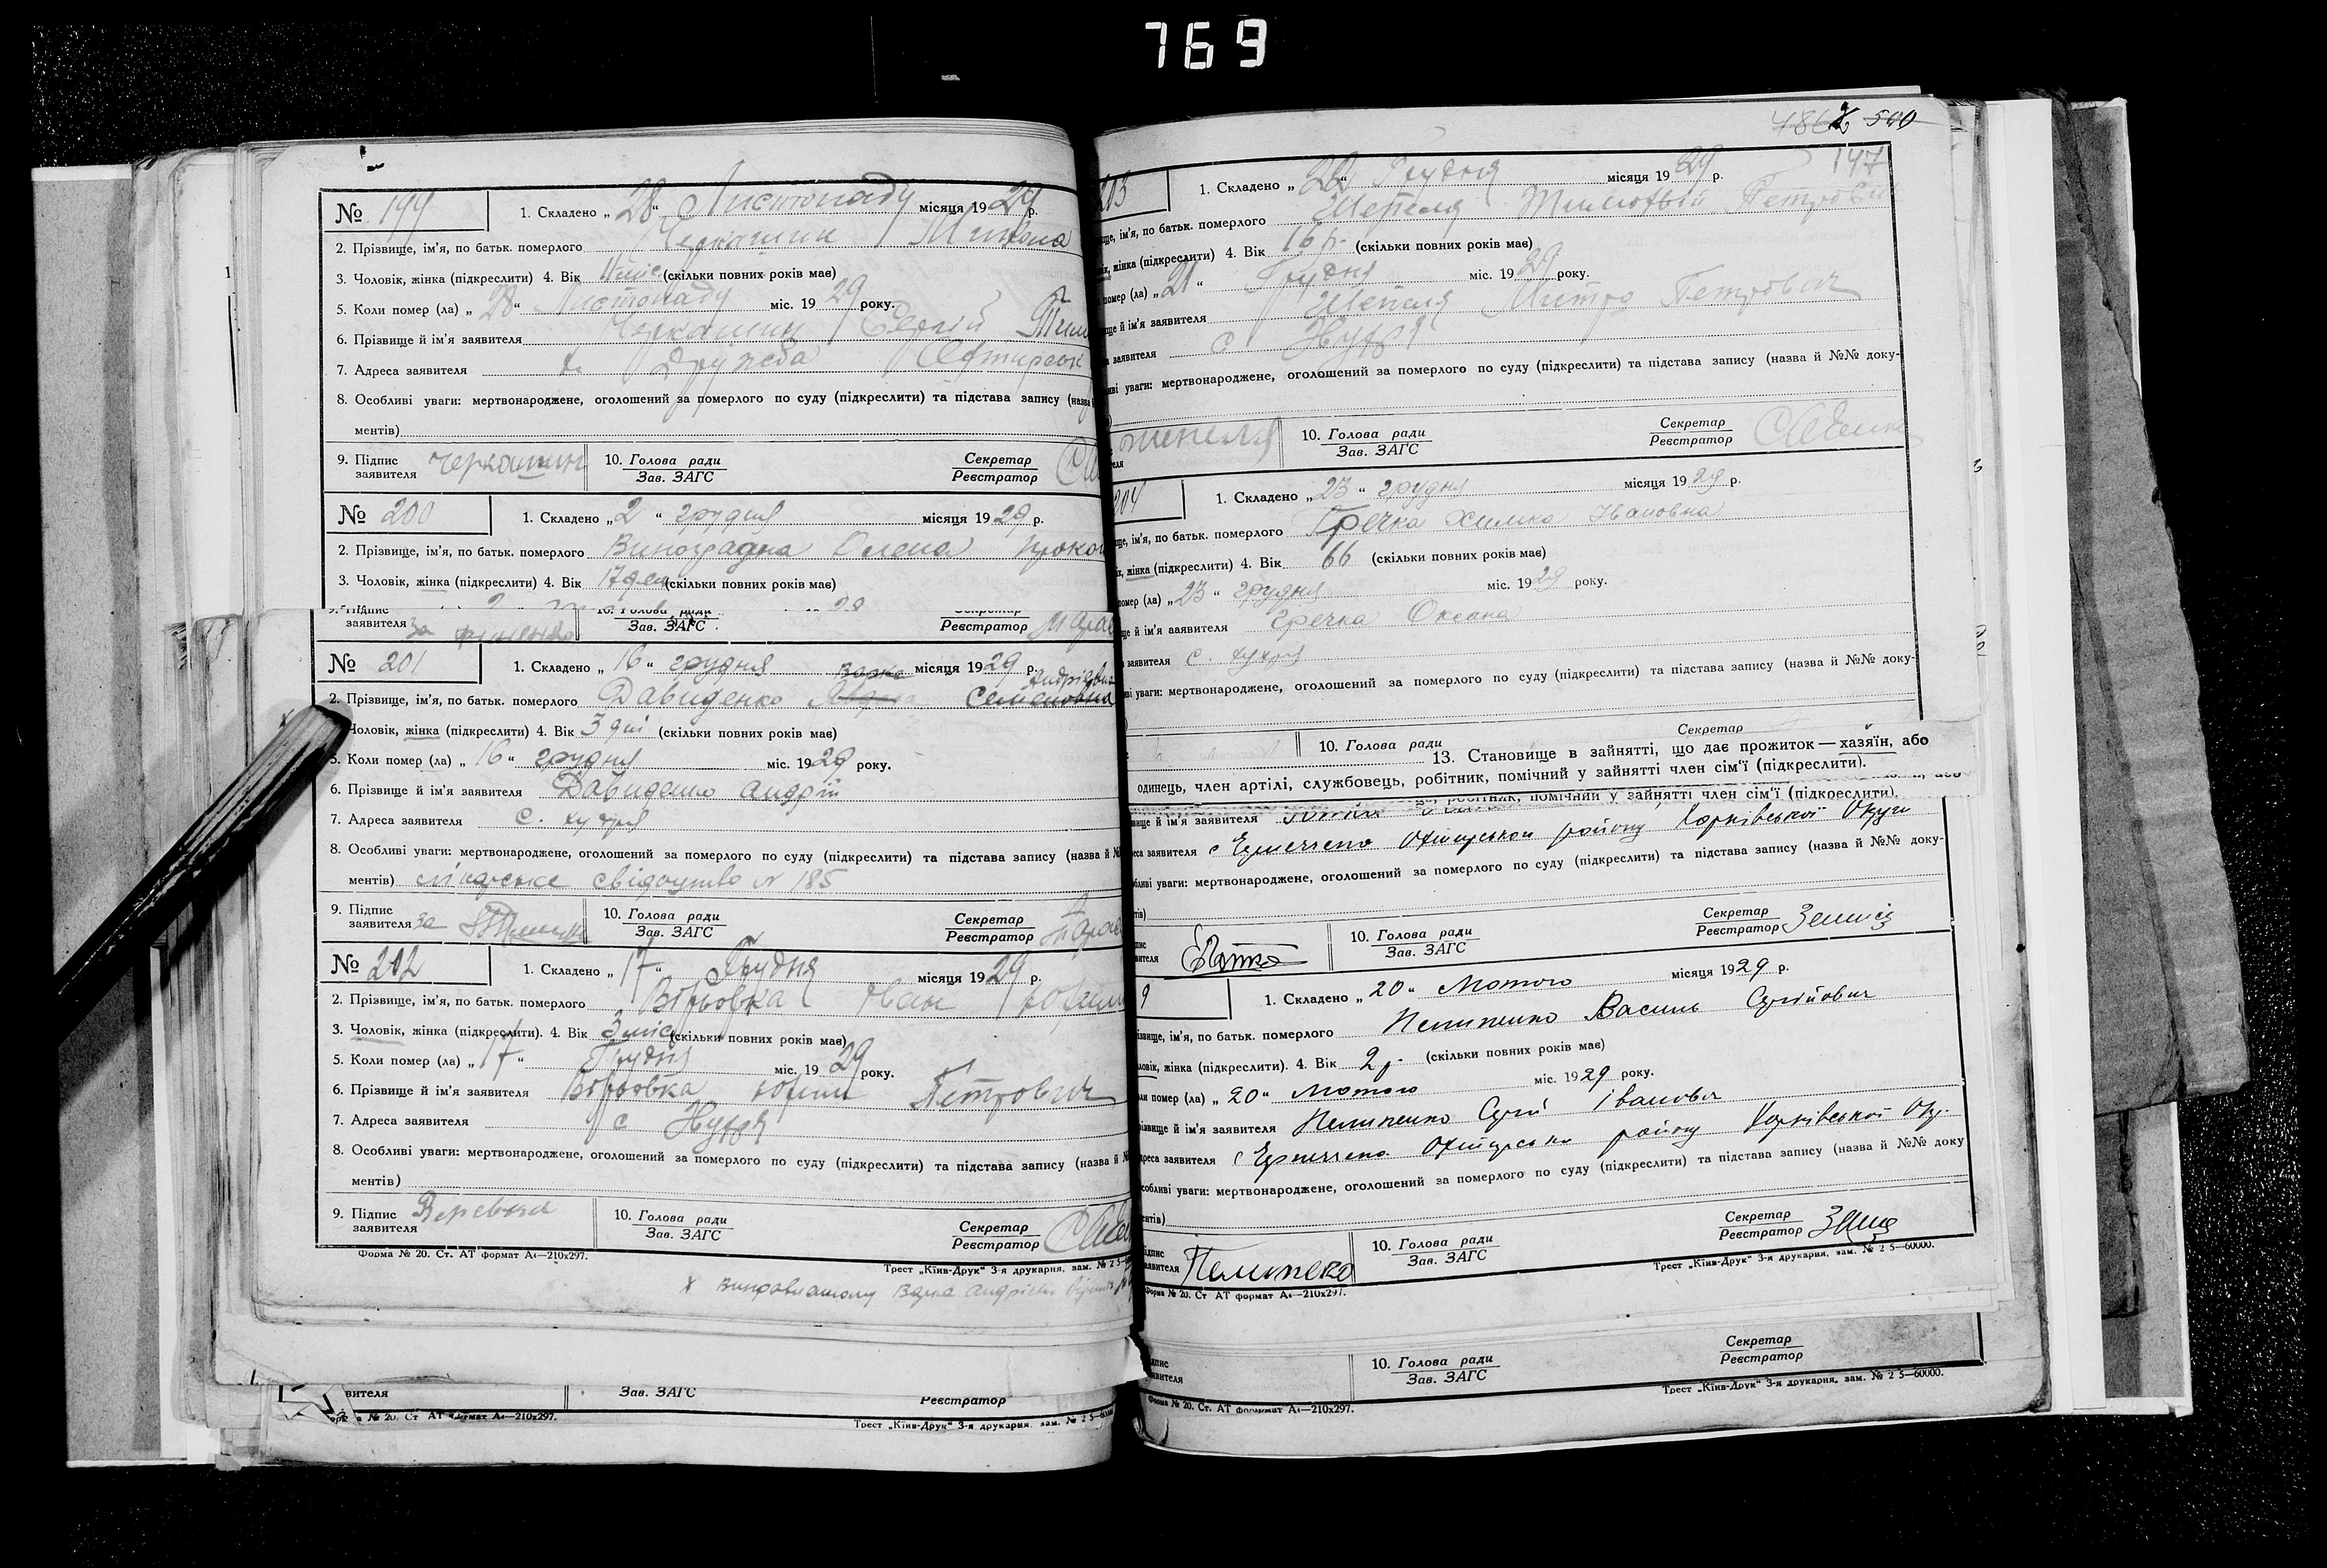 769
№ 199 1. Складено „ 28 “ Листопаду місяця 1929 р.
2. Прізвище, ім'я, по батьк. померлого Черкашин Микола
3. Чоловік, жінка (підкреслити) 4. Вік (скільки повних років має)
5. Коли помер (ла) „ 28 “ Листопаду міс. 1929 року.
6. Прізвище й ім'я заявителя Черкашин Сергій
7. Адреса заявителя х. Дружба
8. Особливі уваги: мертвонароджене, оголошений за померлого по суду (підкреслити) та підстава запису (назва й
ментів)
9. Підпис заявителя Черкашин 10. Голова ради Зав. ЗАГС Секретар Реєстратор
№ 200 1. Складено „ 2 “ грудня місяця 1929 р.
2. Прізвище, ім'я, по батьк. померлого Виноградна Олена Проко
3. Чоловік, жінка (підкреслити) 4. Вік 17 ден (скільки повних років має)
9. Підпис заявителя за 10. Голова ради Зав. ЗАГС Секретар Реєстратор
№ 201 1. Складено „ 16 “ грудня місяця 1929 р.
Варка Андрієвна
2. Прізвище, ім'я, по батьк. померлого Давиденко Семеновна
Чоловік, жінка (підкреслити) 4. Вік 3 дні (скільки повних років має)
5. Коли помер (ла) „ 16 “ грудня міс. 1929 року.
6. Прізвище й ім'я заявителя Давиденко Андрій
7. Адреса заявителя с. Хухря
8. Особливі уваги: мертвонароджене, оголошений за померлого по суду (підкреслити) та підстава запису (назва й №
ментів) лікарське свідоцтво № 185
9. Підпис заявителя за 10. Голова ради Зав. ЗАГС Секретар Реєстратор
№ 202 1. Складено „ 17 “ Грудня місяця 1929 р.
2. Прізвище, ім'я, по батьк. померлого Вірьовка Іван
3. Чоловік, жінка (підкреслити). 4. Вік 3 міс (скільки повних років має)
5. Коли помер (ла) „ 17 “ Грудня міс. 1929 року.
6. Прізвище й ім'я заявителя Вірьовка Юхим Петрович
7. Адреса заявителя с Хухря
8. Особливі уваги: мертвонароджене, оголошений за померлого по суду (підкреслити) та підстава запису (назва й №
ментів)
9. Підпис заявителя 10. Голова ради Зав. ЗАГС Секретар Реєстратор
Форма № 20. Ст. АТ формат А4—210х297. Трест „Київ-Друк“ 3-я друкарня, зам. № 2 5—
х Виправленому Варка Андрієвн
вителя Зав. ЗАГС Реєстратор
№ 20. Ст АТ формат А4—210х297. Трест „Київ-Друк“ 3-я друкарня, зам. № 2 5—60000.
500
147
1. Складено „ 22 “ Грудня місяця 1929 р.
ім'я, по батьк. померлого Шепеля Тимофій Петрович
жінка (підкреслити) 4. Вік 16 р. (скільки повних років має)
помер (ла) „ 21 “ Грудня міс. 1929 року.
ще й ім'я заявителя Шепеля Митро Петрович
заявителя с Хухря
уваги: мертвонароджене, оголошений за померлого по суду (підкреслити) та підстава запису (назва й №№ доку-
Шепеля 10. Голова ради Зав. ЗАГС Секретар Реєстратор
204 1. Складено „ 23 “ грудня місяця 1929 р.
ім'я, по батьк. померлого Гречка Химка Івановна
жінка (підкреслити) 4. Вік 66 (скільки повних років має)
помер (ла) „ 23 “ грудня міс. 1929 року.
й ім'я заявителя Гречка Оксана
заявителя с. Хухря
уваги: мертвонароджене, оголошений за померлого по суду (підкреслити) та підстава запису (назва й №№ доку-
10. Голова ради Секретар
13. Становище в зайнятті, що дає прожиток — хазяїн, або
одинець, член артілі, службовець, робітник, помічний у зайнятті член сім'ї (підкреслити).
робітник, помічний у зайнятті член сім'ї (підкреслити).
й ім'я заявителя
заявителя с району Харківської Округи
уваги: мертвонароджене, оголошений за померлого по суду (підкреслити) та підстава запису (назва й №№ доку-
10. Голова ради Зав. ЗАГС Секретар Реєстратор
9 1. Складено „ 20 “ Лютого місяця 1929 р.
ім'я, по батьк. померлого Пелипенко Василь Сергійович
жінка (підкреслити). 4. Вік 2 р. (скільки повних років має)
помер (ла) „ 20 “ Лютого міс. 1929 року.
й ім'я заявителя Пелипенко Сергій Іванович
заявителя с району Харківської Окр.
уваги: мертвонароджене, оголошений за померлого по суду (підкреслити) та підстава запису (назва й №№ доку
10. Голова ради Зав. ЗАГС Секретар Реєстратор
Форма № 20. Ст АТ формат А4—210х297. Трест „Київ-Друк“ 3-я друкарня, зам. № 2 5—60000.
10. Голова ради Зав. ЗАГС Секретар Реєстратор
Форма № 20. Ст. АТ формат А4—210х297. Трест „Київ-Друк“ 3-я друкарня, зам. № 2 5—60000.